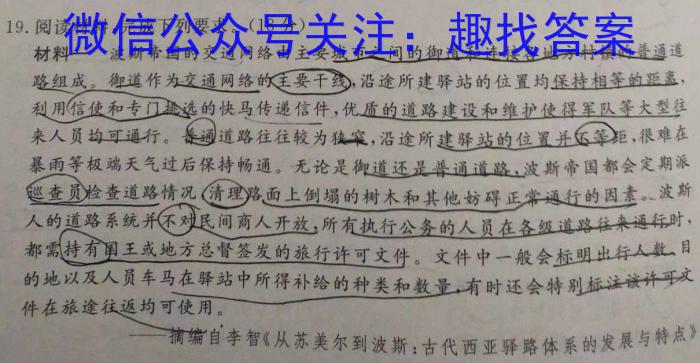 19. 阅读材料,完成下列要求。(12分)
微信公众号关注:趣找答案
材料 波斯帝国的交通网络由主要城市之间的御道和连接各地方村镇的普通道
路组成。御道作为交通网络的主要干线,沿途所建驿站的位置均保持相等的距离,
利用信使和专门挑选的快马传递信件,优质的道路建设和维护使得军队等大型往
来人员均可通行。普通道路往往较为狭窄,沿途所建驿站的位置并不等距,很难在
暴雨等极端天气过后保持畅通。无论是御道还是普通道路,波斯帝国都会定期派
巡查员检查道路情况,清理路面上倒塌的树木和其他妨碍正常通行的因素。波斯
人的道路系统并不对民间商人开放,所有执行公务的人员在各级道路往来通行时,
都需持有国王或地方总督签发的旅行许可文件。文件中一般会标明出行人数、目
的地以及人员车马在驿站中所得补给的种类和数量,有时还会特别标注该许可文
件在旅途往返均可使用。
——摘编自李智《从苏美尔到波斯:古代西亚驿路体系的发展与特点》